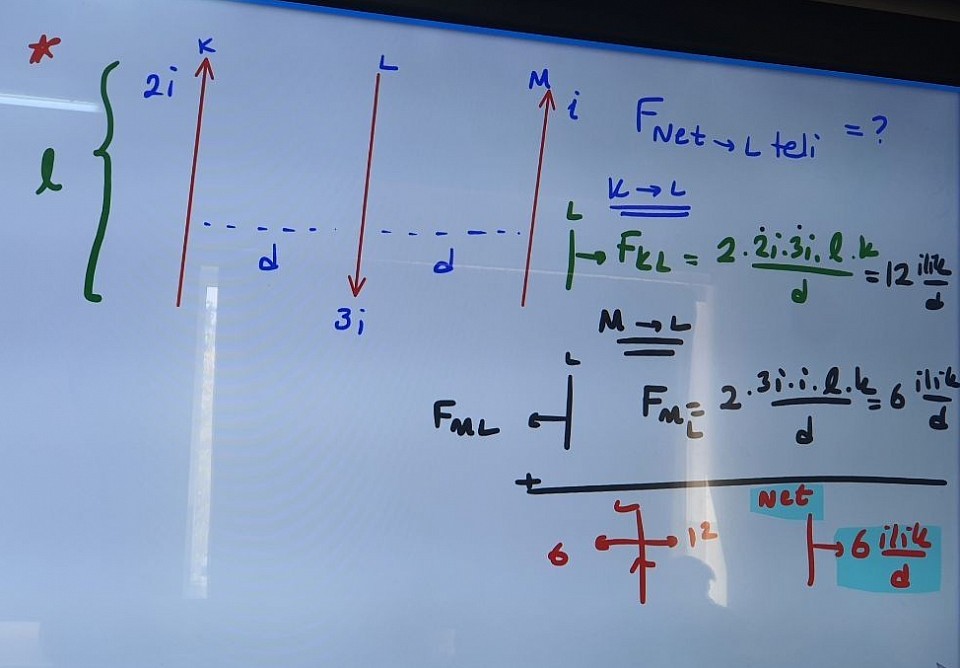 *
K
L
M
2i
i
l
d
d
3i
F Net → L teli = ?
K → L
L
F KL = 2 . 2i . 3i . l . k / d = 12 i l i k / d
M → L
L
F ML
F ML = 2 . 3i . i . l . k / d = 6 i l i k / d
+
L
6
12
Net
6 i l i k / d